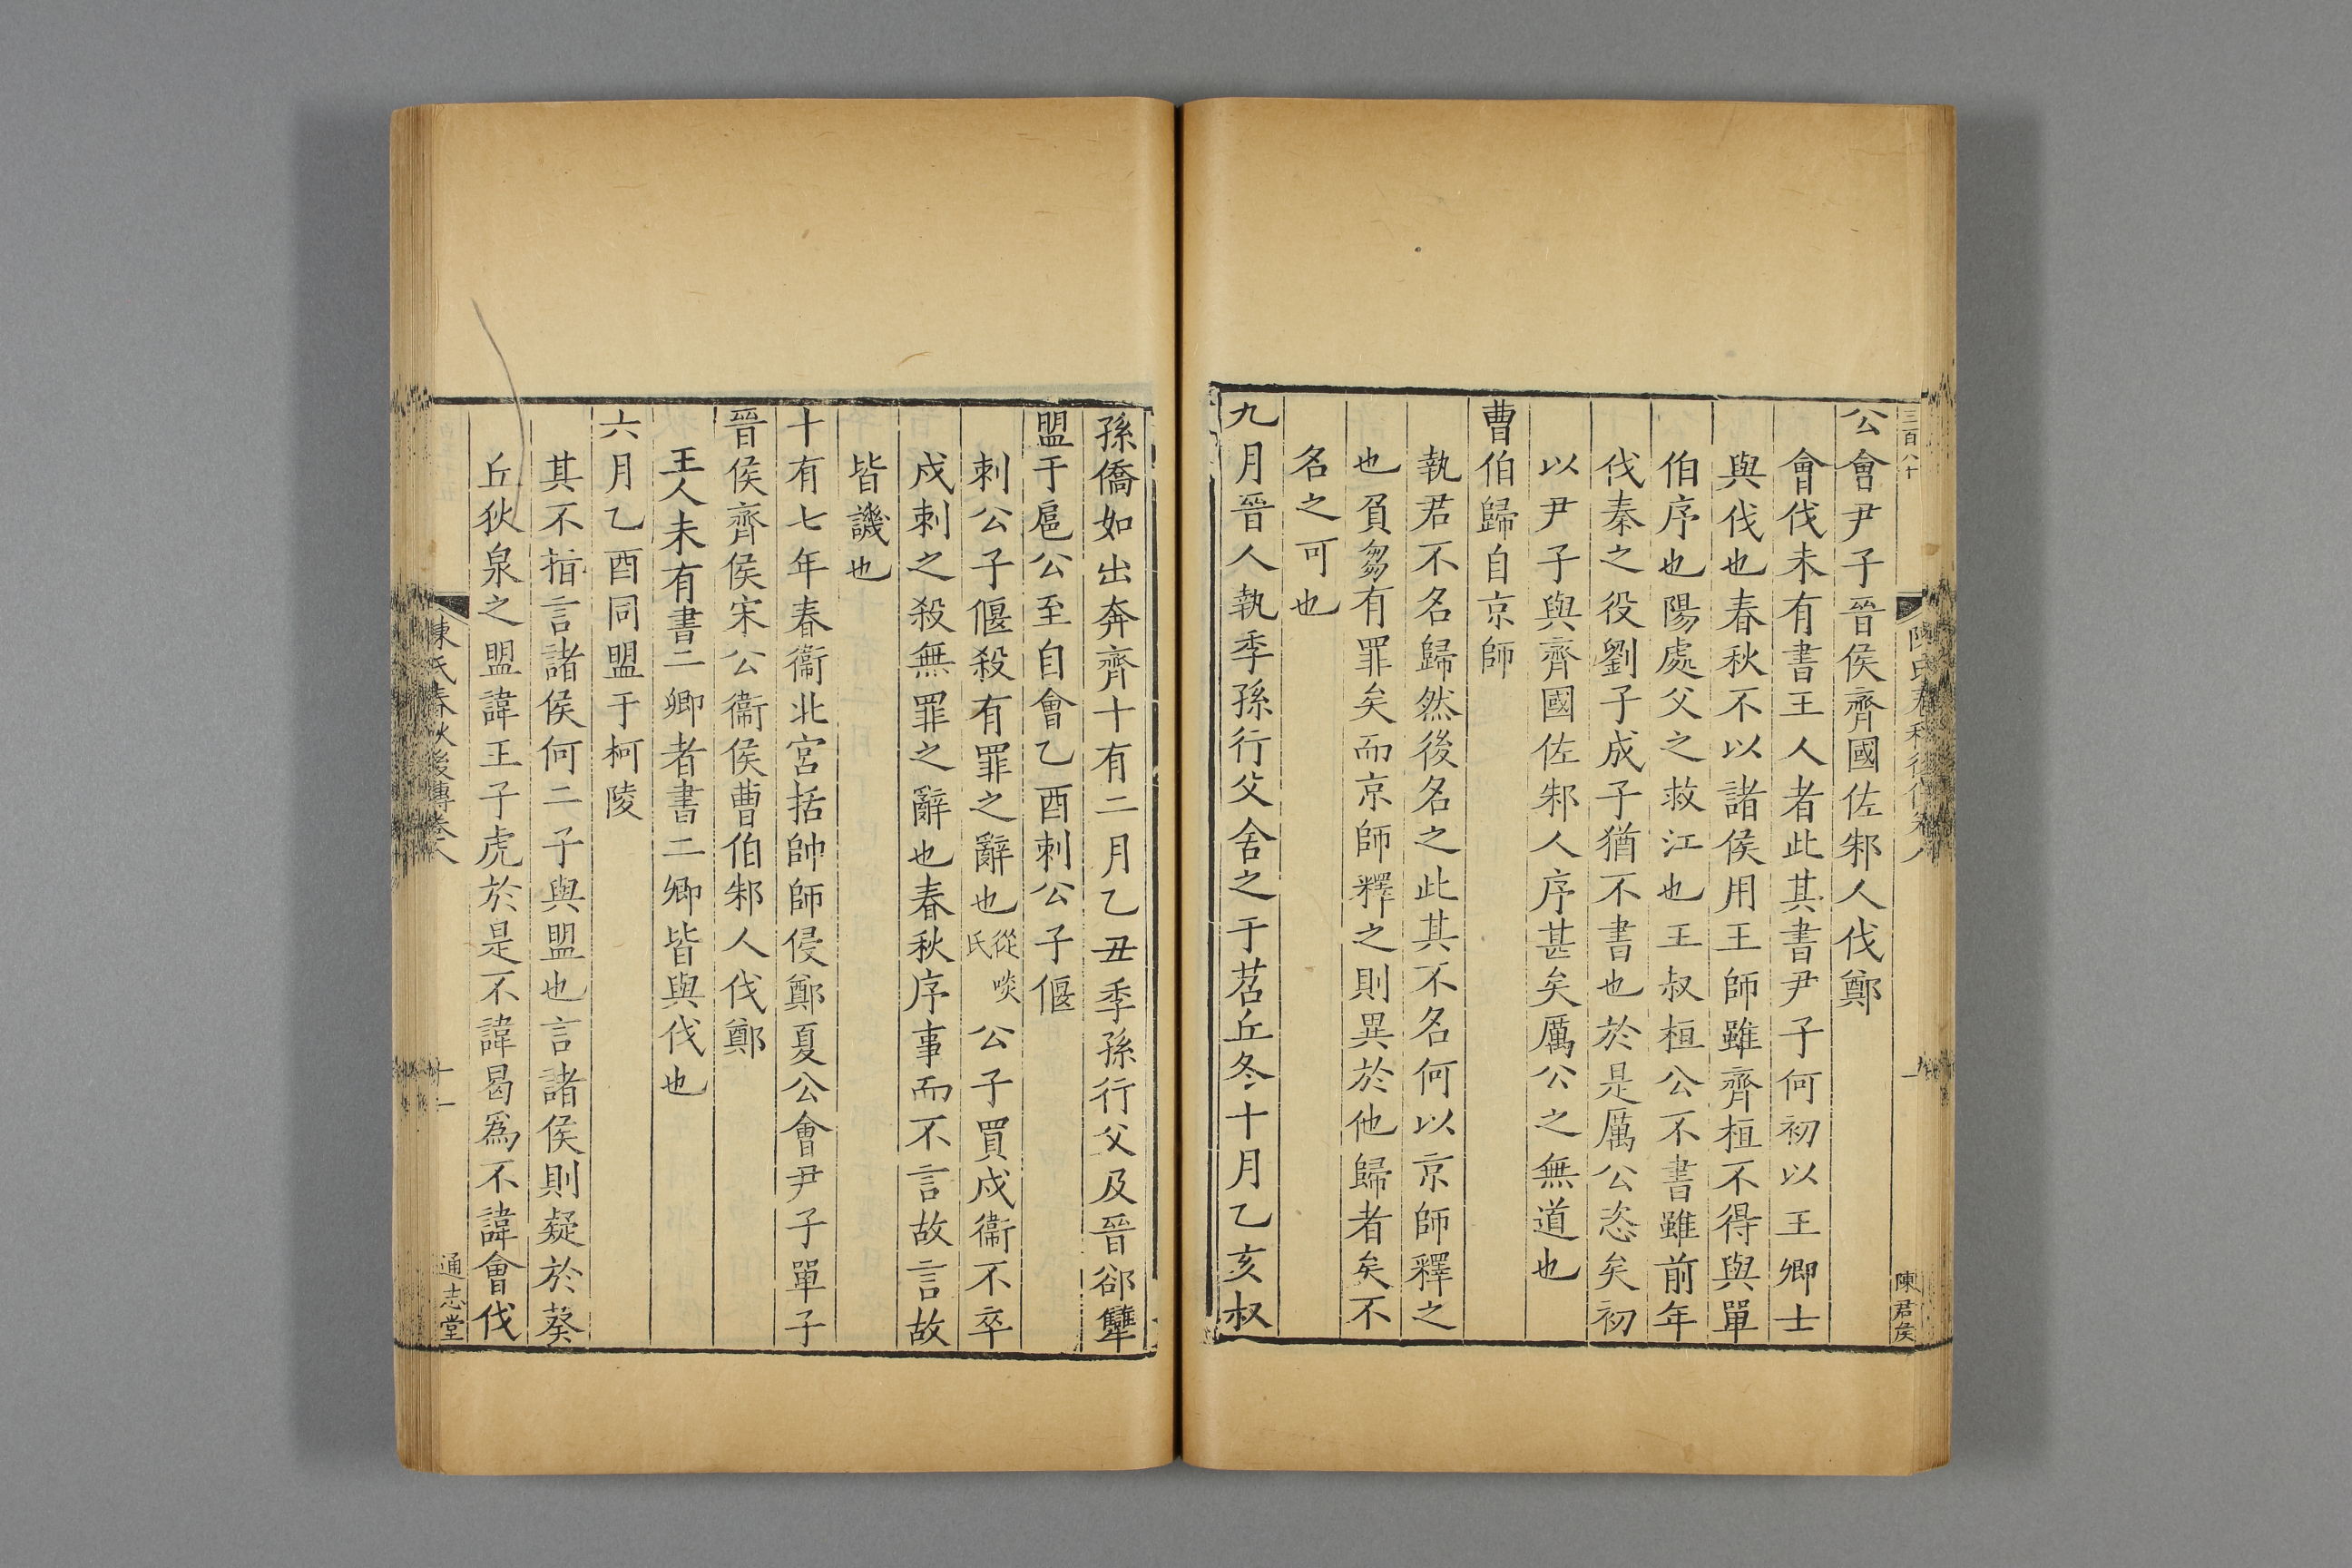 三百八十
陳氏春秋後傳卷八
陳君侯
公會尹子晉侯齊國佐邾人伐鄭
會伐未有書王人者此其書尹子何初以王卿士
與伐也春秋不以諸侯用王師雖齊桓不得與單
伯序也陽處父之救江也王叔桓公不書雖前年
伐秦之役劉子成子猶不書也於是厲公恣矣初
以尹子與齊國佐邾人序甚矣厲公之無道也
曹伯歸自京師
執君不名歸然後名之此其不名何以京師釋之
也負芻有罪矣而京師釋之則異於他歸者矣不
名之可也
九月晉人執季孫行父舍之于苕丘冬十月乙亥叔
孫僑如出奔齊十有二月乙丑季孫行父及晉郤犫
盟于扈公至自會乙酉刺公子偃
刺公子偃殺有罪之辭也從啖氏公子買戍衞不卒
戍刺之殺無罪之辭也春秋序事而不言故言故
皆譏也
十有七年春衞北宮括帥師侵鄭夏公會尹子單子
晉侯齊侯宋公衞侯曹伯邾人伐鄭
王人未有書二卿者書二卿皆與伐也
六月乙酉同盟于柯陵
其不指言諸侯何二子與盟也言諸侯則疑於葵
丘狄泉之盟諱王子虎於是不諱曷爲不諱會伐
陳氏春秋後傳卷八
十一
通志堂